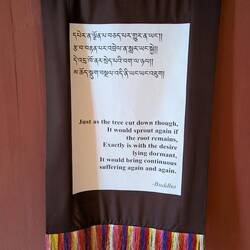 དཔེར་ན་ལྗོན་པ་བཅད་པར་གྱུར་ན་ཡང༌།།
རྩ་བ་བརྟན་པར་འབྲེལ་ན་སླར་ཡང་སྐྱེ།།
Just as the tree cut down though,
It would sprout again if
the root remains,
Exactly is with the desire
lying dormant,
It would bring continuous
suffering again and again.
-Buddha